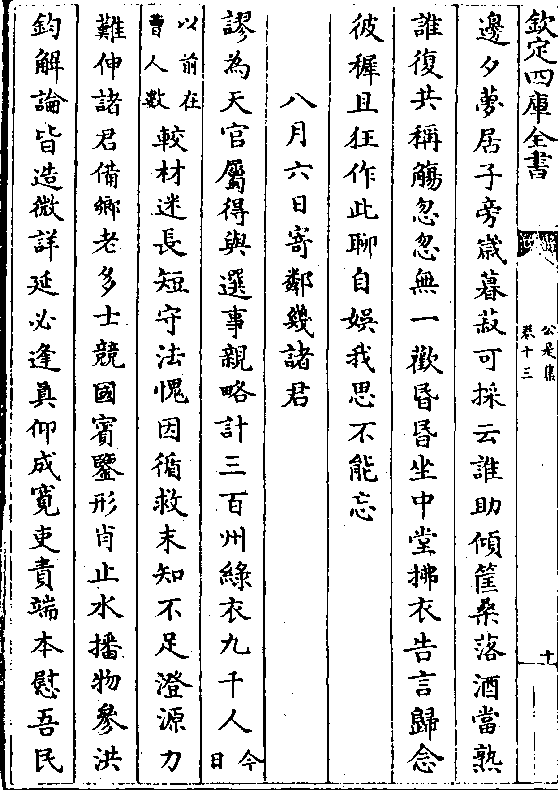 欽定四庫全書
公是集
卷十三
十
邊夕夢居子旁歳暮菽可採云誰助傾筐桑落酒當熟
誰復共稱觴忽忽無一歡昏昏坐中堂拂衣告言歸念
彼穉且狂作此聊自娛我思不能忘
八月六日寄鄰幾諸君
謬為天官屬得與選事親略計三百州綠衣九千人今日
以前在
曹人數
較材迷長短守法愧因循救末知不足澄源力
難伸諸君備鄉老多士競國賓鑒形肖止水播物參洪
鈞解論皆造微詳延必逢真仰成寛吏責端本慰吾民